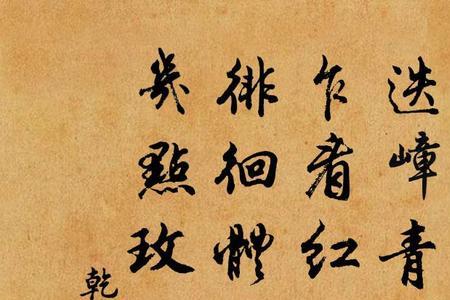 迭嶂青
乍看红
徘徊體
幾點玫
乾